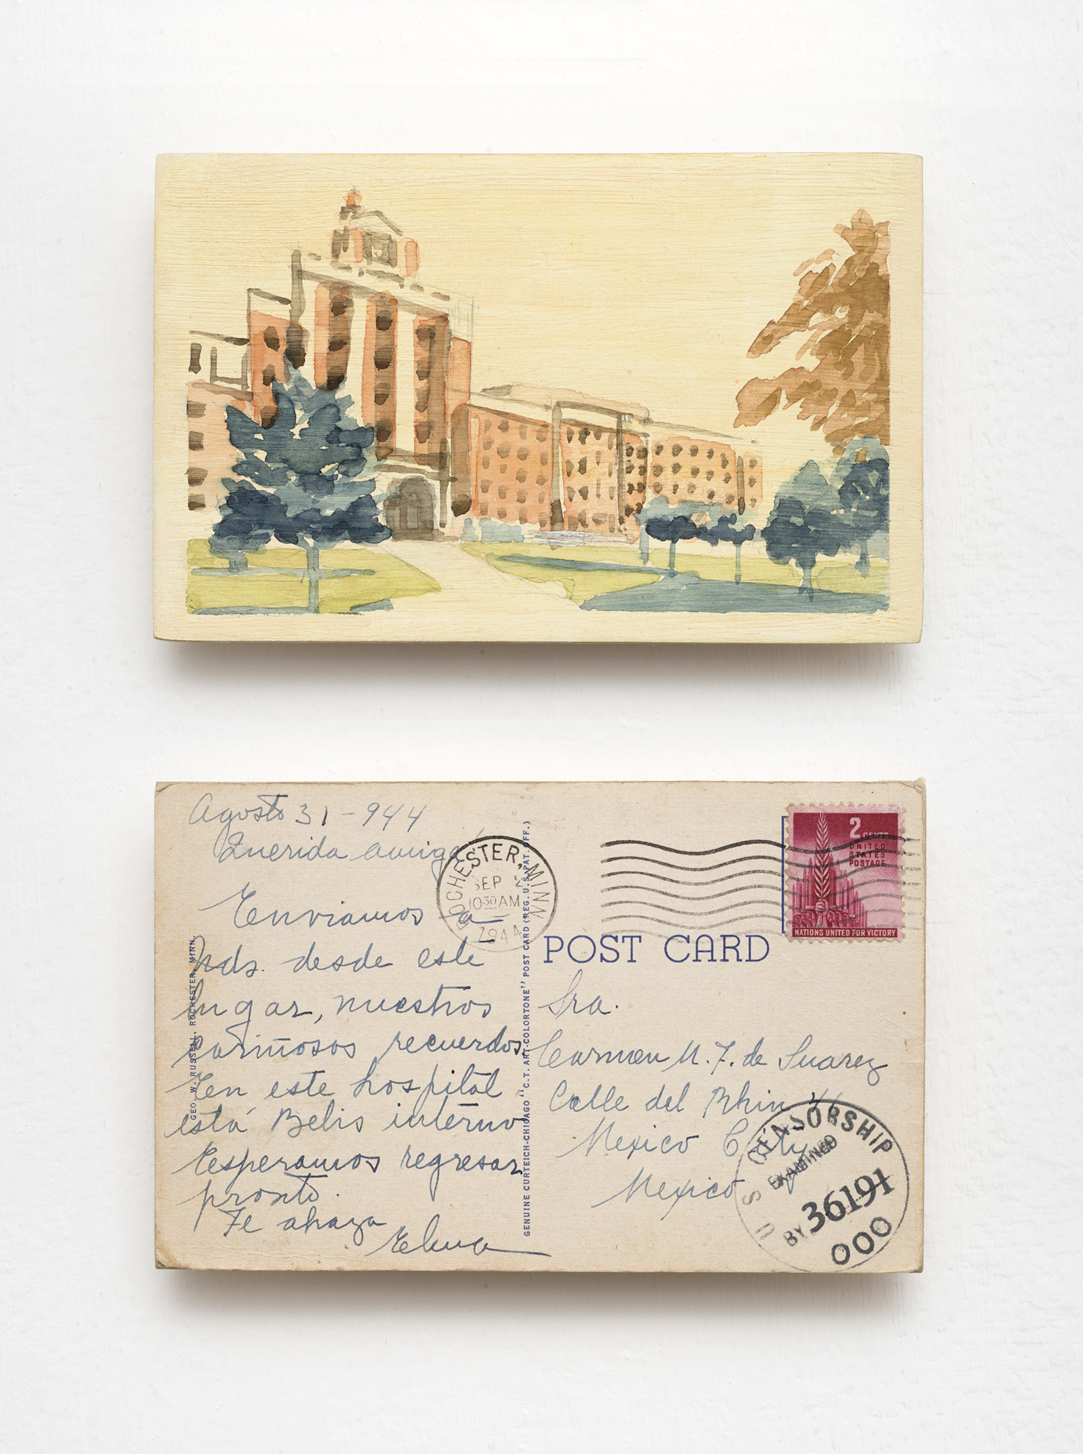 Agosto 31-944
Querida amiga
Enviamos a
Uds. desde este
lugar, nuestros
cariñosos recuerdos.
En este hospital
está Belis interno
Esperamos regresar
pronto.
Te abraza
Elma
GEO. W. RUSSELL, ROCHESTER, MINN.
ROCHESTER, MINN
SEP 2
10 30 AM
1944
GENUINE CURTEICH-CHICAGO "C.T. ART-COLORTONE" POST CARD (REG. U.S. PAT. OFF.)
2 CENTS
UNITED
STATES
POSTAGE
NATIONS UNITED FOR VICTORY
POST CARD
Sra.
Carmen M. F. de Suarez
Calle del Rhin 46
Mexico City
Mexico
U S CENSORSHIP
EXAMINED
BY 36191
000